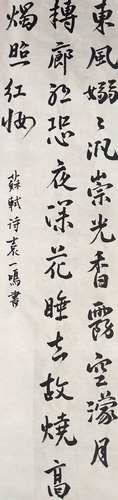 東風嫋〻汎崇光香霧空濛月
轉廊祇恐夜深花睡去故燒高
燭照紅妝
蘇軾诗袁一鳴書